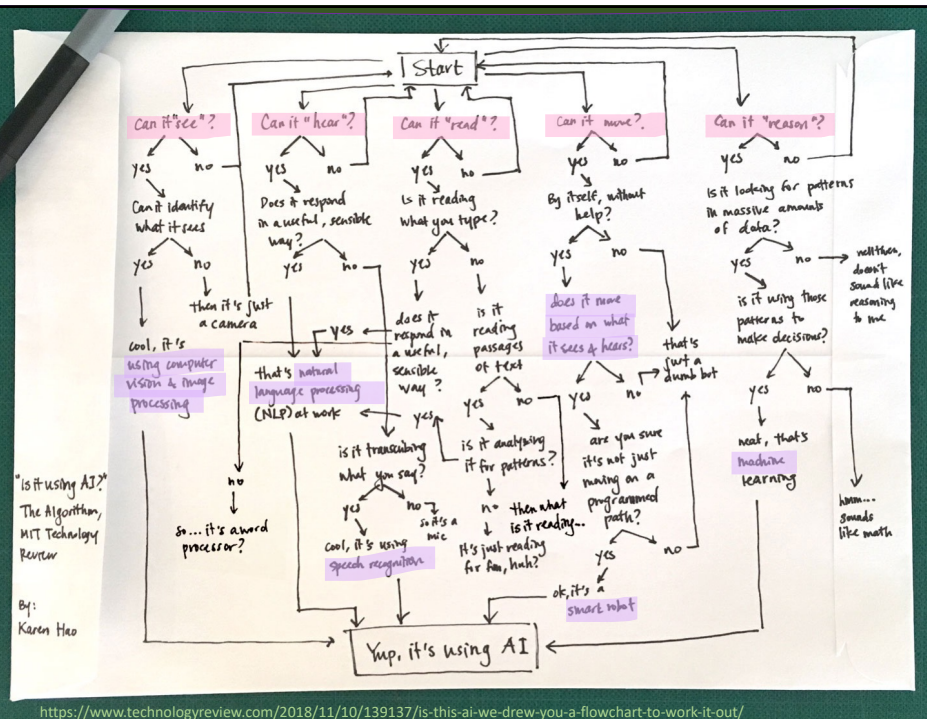 Start
Can it "see"?
yes
no
Can it identify
what it sees
yes
no
then it's just
a camera
cool, it's
using computer
vision & image
processing
Can it "hear"?
yes
no
Does it respond
in a useful, sensible
way?
yes
no
that's natural
language processing
(NLP) at work
is it transcribing
what you say?
yes
no
so it's a
mic
cool, it's using
speech recognition
Can it "read"?
yes
no
Is it reading
what you type?
yes
no
does it
respond in
a useful,
sensible
way?
yes
no
so... it's a word
processor?
is it
reading
passages
of text
yes
no
then what
is it reading...
is it analyzing
it for patterns?
yes
no
It's just reading
for fun, huh?
Can it move?
yes
no
By itself, without
help?
yes
no
does it move
based on what
it sees & hears?
yes
no
that's
just a
dumb bot
are you sure
it's not just
moving on a
programmed
path?
yes
no
ok, it's a
smart robot
Can it "reason"?
yes
no
Is it looking for patterns
in massive amounts
of data?
yes
no
well then,
doesn't
sound like
reasoning
to me
is it using those
patterns to
make decisions?
yes
no
neat, that's
machine
learning
hmm...
sounds
like math
Yup, it's using AI
"Is it using AI?"
The Algorithm,
MIT Technology
Review
By:
Karen Hao
https://www.technologyreview.com/2018/11/10/139137/is-this-ai-we-drew-you-a-flowchart-to-work-it-out/